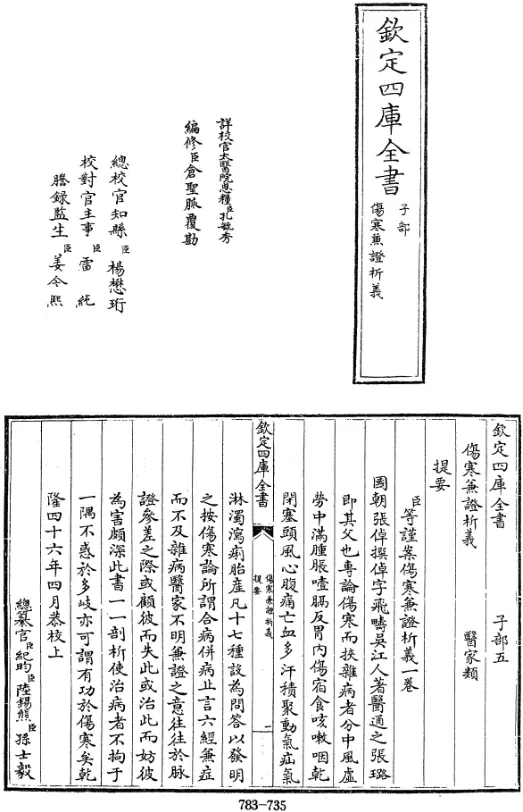 欽定四庫全書
子部
傷寒兼證析義
詳校官太醫院恩糧臣孔毓秀
編修臣倉聖脈覆勘
總校官知縣臣楊懋珩
校對官主事臣雷純
謄錄監生臣姜令熙
欽定四庫全書　子部五
傷寒兼證析義　醫家類
提要
臣等謹案傷寒兼證析義一卷
國朝張倬撰倬字飛疇吳江人著醫通之張璐
即其父也專論傷寒而挾雜病者分中風虛
勞中滿腫脹噎膈反胃內傷宿食咳嗽咽乾
閉塞頭風心腹痛亡血多汗積聚動氣疝氣
欽定四庫全書
傷寒兼證析義
提要
一
淋濁瀉痢胎產凡十七種設為問答以發明
之按傷寒論所謂合病併病止言六經兼症
而不及雜病醫家不明兼證之意往往於脈
證參差之際或顧彼而失此或治此而妨彼
為害頗深此書一一剖析使治病者不拘于
一隅不惑於多歧亦可謂有功於傷寒矣乾
隆四十六年四月恭校上
總纂官臣紀昀臣陸錫熊臣孫士毅
783-735